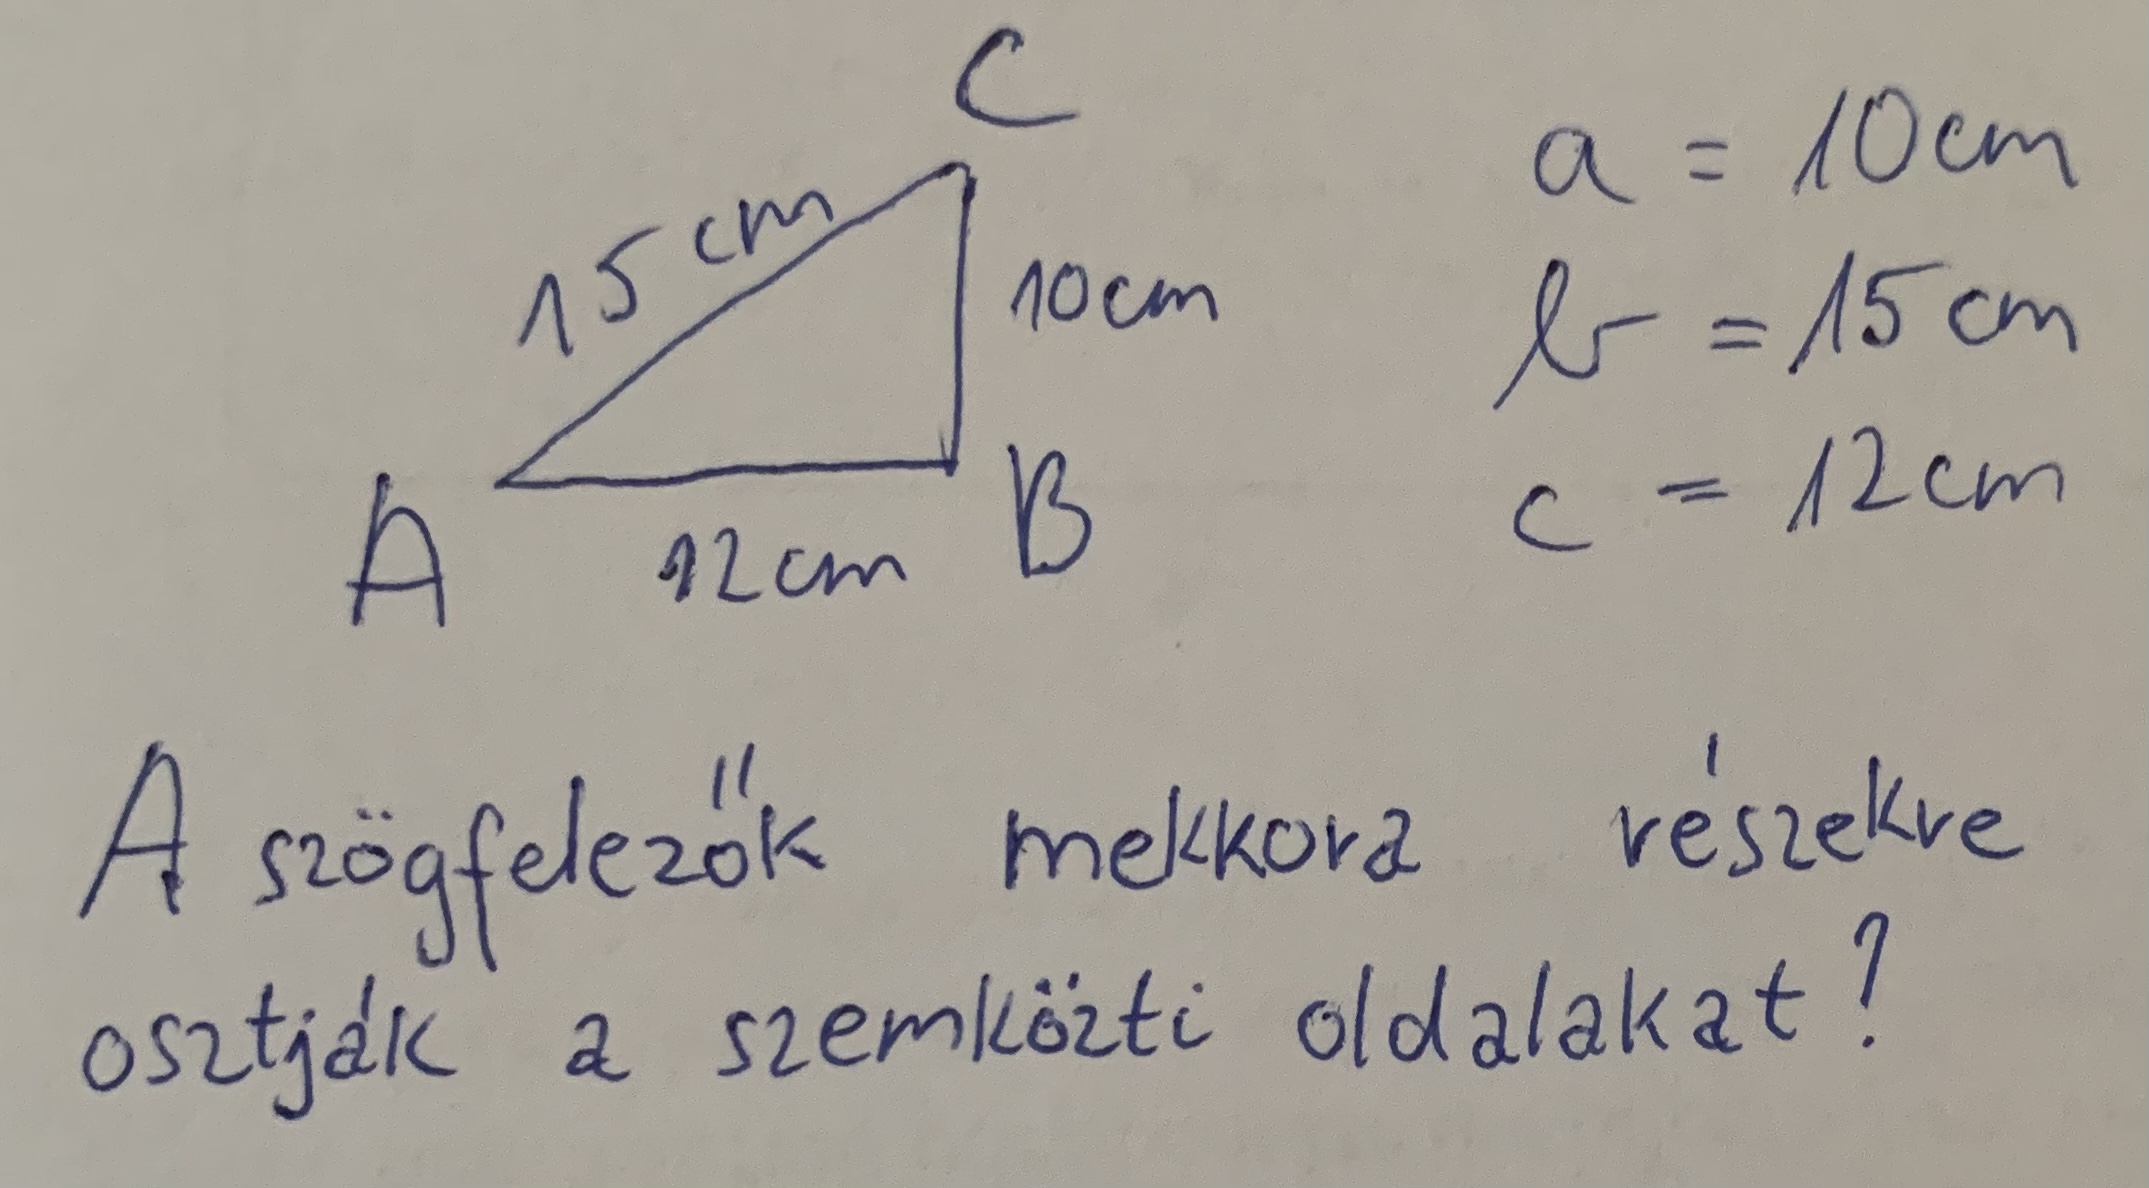 C
15 cm
10cm
A
B
12cm
a = 10cm
b = 15cm
c = 12cm
A szögfelezők mekkora részekre
osztják a szemközti oldalakat?